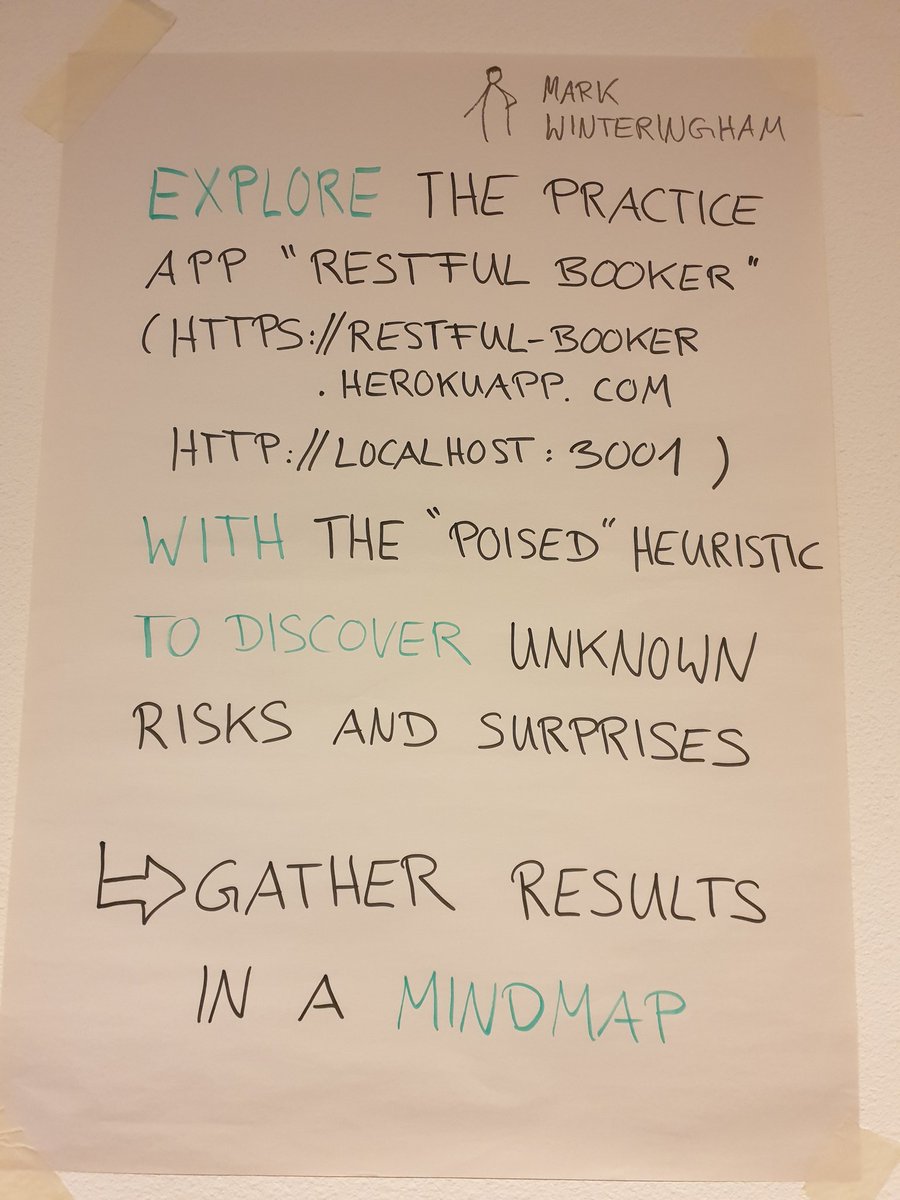 MARK
WINTERINGHAM
EXPLORE THE PRACTICE
APP "RESTFUL BOOKER"
(HTTPS://RESTFUL-BOOKER
.HEROKUAPP.COM
HTTP://LOCALHOST:3001)
WITH THE "POISED" HEURISTIC
TO DISCOVER UNKNOWN
RISKS AND SURPRISES
GATHER RESULTS
IN A MINDMAP